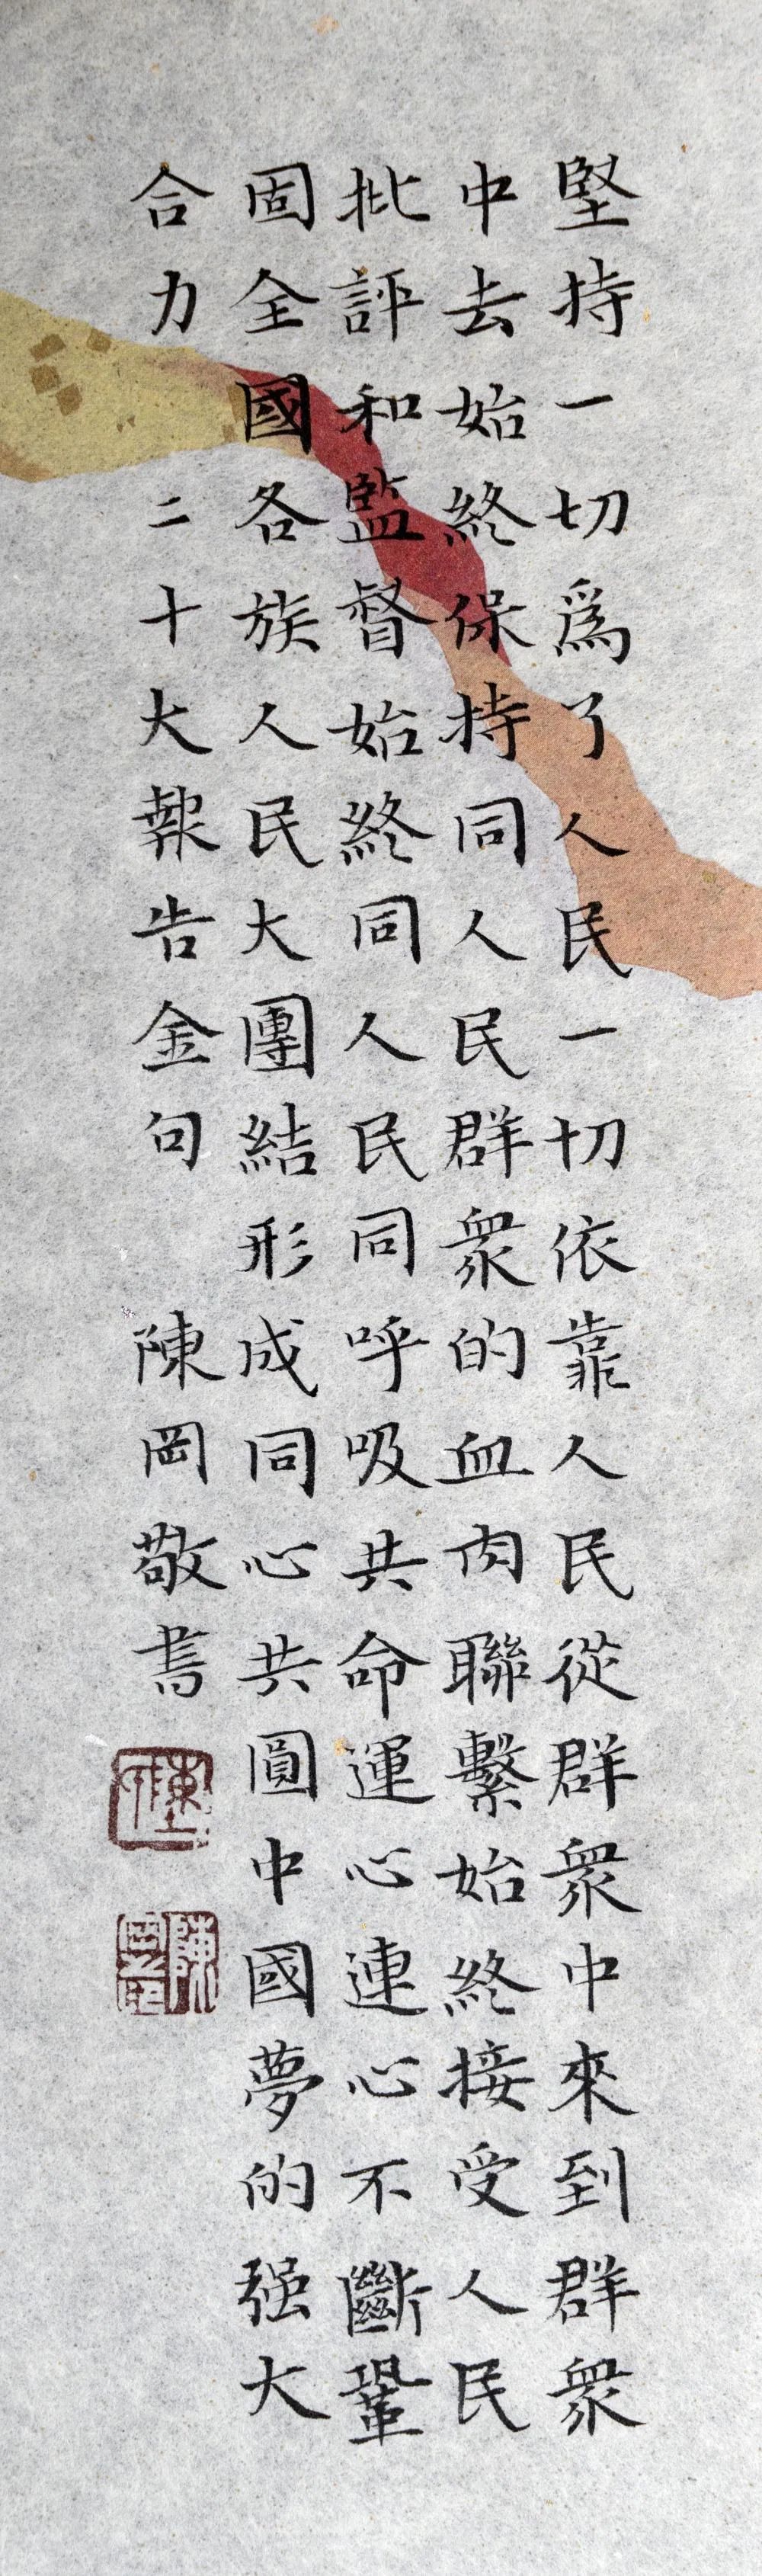 堅持一切爲了人民一切依靠人民從群衆中來到群衆
中去始終保持同人民群衆的血肉聯繫始終接受人民
批評和監督始終同人民同呼吸共命運心連心不斷鞏
固全國各族人民大團結形成同心共圓中國夢的强大
合力 二十大報告金句 陳岡敬書